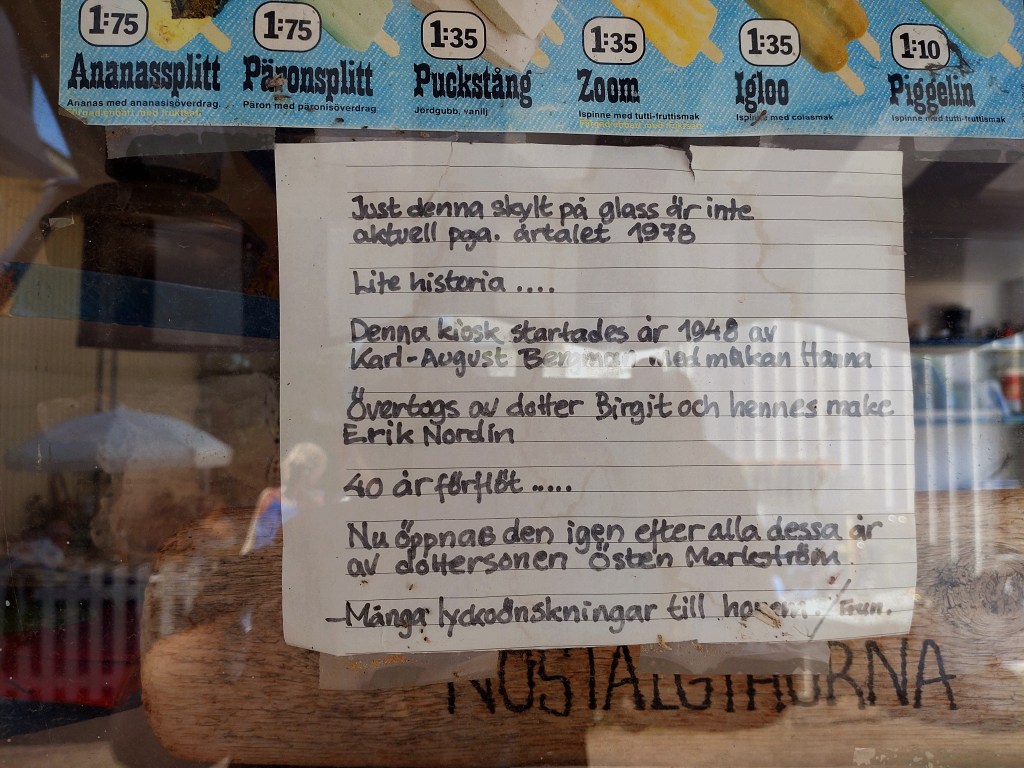 1:75
1:75
1:35
1:35
1:35
1:10
Ananassplitt
Päronsplitt
Puckstång
Zoom
Igloo
Piggelin
Ananas med ananasisöverdrag.
Päron med päronisöverdrag
Jordgubb, vanilj
Ispinne med tutti-fruttismak
Ispinne med colasmak
Ispinne med tutti-fruttismak
Just denna skylt på glass är inte
aktuell pga. årtalet 1978
Lite historia ....
Denna kiosk startades år 1948 av
Karl-August Bergman med makan Hanna
Övertogs av dotter Birgit och hennes make
Erik Nordin
40 år förflöt .....
Nu öppnas den igen efter alla dessa år
av dottersonen Östen Markström
- Många lyckoönskningar till honom
NOSTALGIHÖRNA